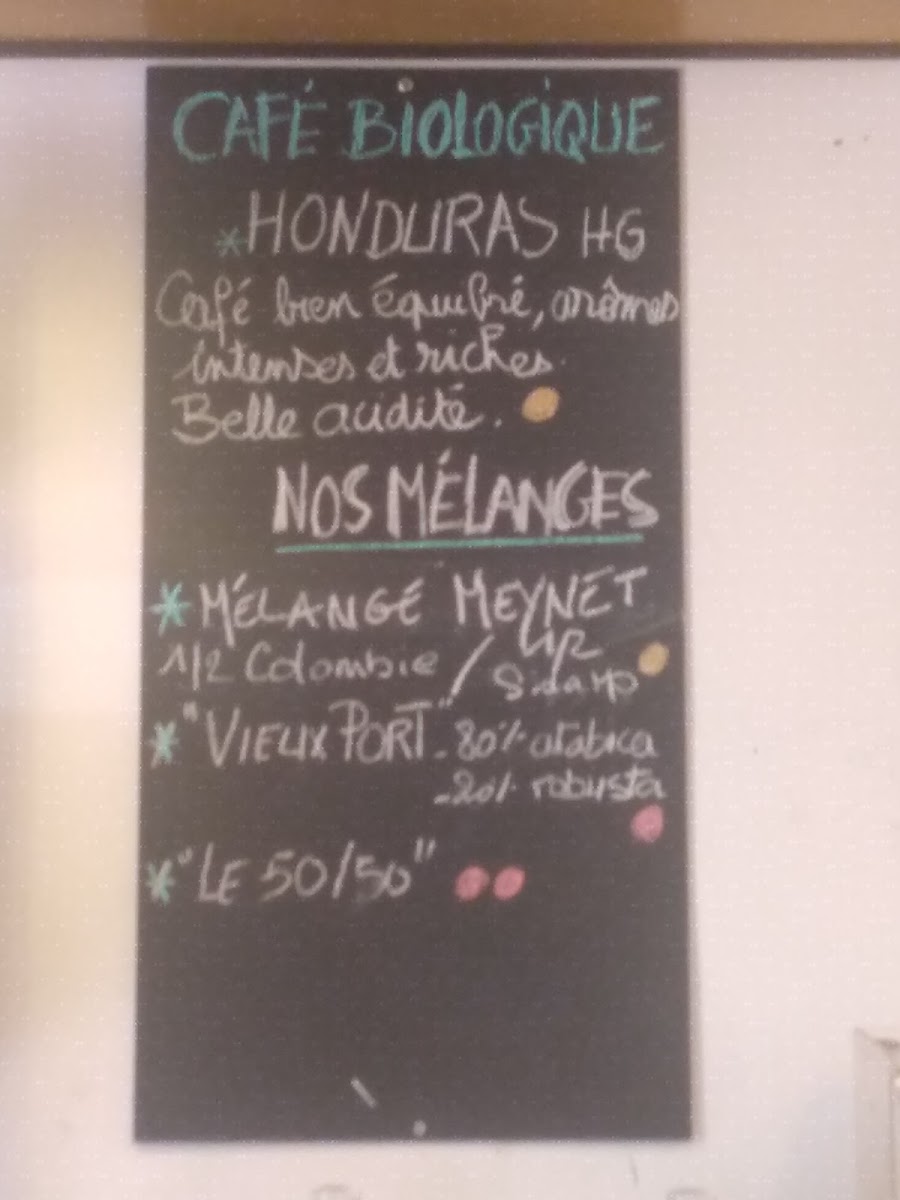 CAFÉ BIOLOGIQUE
*HONDURAS HG
Café bien équilibré, arômes
intenses et riches.
Belle acidité.
NOS MÉLANGES
* MÉLANGE MEYNET
1/2 Colombie / 1/2
Sidamo
* "VIEUX PORT" - 80% arabica
- 20% robusta
* "LE 50/50"